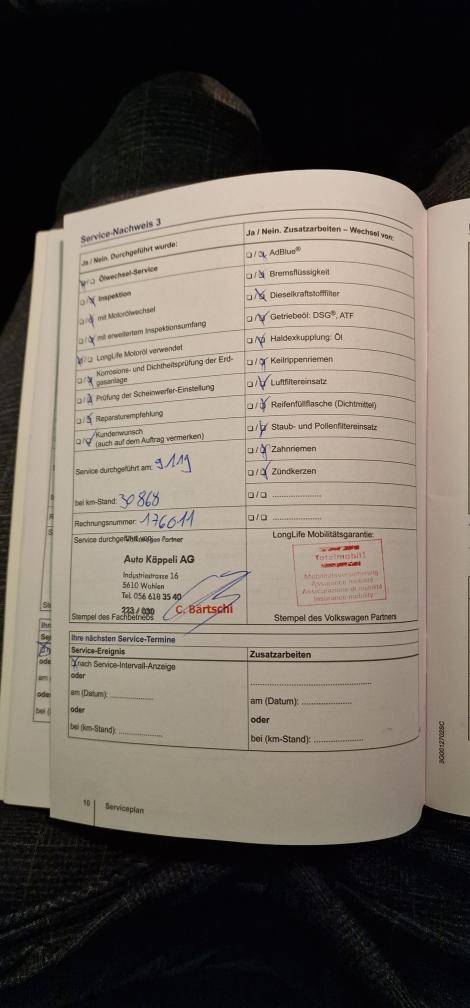 Service-Nachweis 3
Ja / Nein. Durchgeführt wurde:
Ölwechsel-Service
Inspektion
mit Motorölwechsel
mit erweitertem Inspektionsumfang
LongLife Motoröl verwendet
Korrosions- und Dichtheitsprüfung der Erd-
gasanlage
Prüfung der Scheinwerfer-Einstellung
Reparaturempfehlung
Kundenwunsch
(auch auf dem Auftrag vermerken)
Service durchgeführt am: 9.1.19
bei km-Stand: 30868
Rechnungsnummer: 176011
Service durchgeführt
Volkswagen Partner
Auto Käppeli AG
Industriestrasse 16
5610 Wohlen
Tel. 056 618 35 40
223 / 030 C. Bärtschi
Stempel des Fachbetriebs
Ja / Nein. Zusatzarbeiten – Wechsel von:
AdBlue®
Bremsflüssigkeit
Dieselkraftstofffilter
Getriebeöl: DSG®, ATF
Haldexkupplung: Öl
Keilrippenriemen
Luftfiltereinsatz
Reifenfüllflasche (Dichtmittel)
Staub- und Pollenfiltereinsatz
Zahnriemen
Zündkerzen
LongLife Mobilitätsgarantie:
Totalmobil!
Mobilitätsversicherung
Assurance mobilité
Assicurazione di mobilità
Insurance mobility
Stempel des Volkswagen Partners
Ihre nächsten Service-Termine
Service-Ereignis
nach Service-Intervall-Anzeige
oder
am (Datum): ....................
oder
bei (km-Stand): ....................
Zusatzarbeiten
am (Datum): ....................
oder
bei (km-Stand): ....................
10 Serviceplan
3G0012702SC